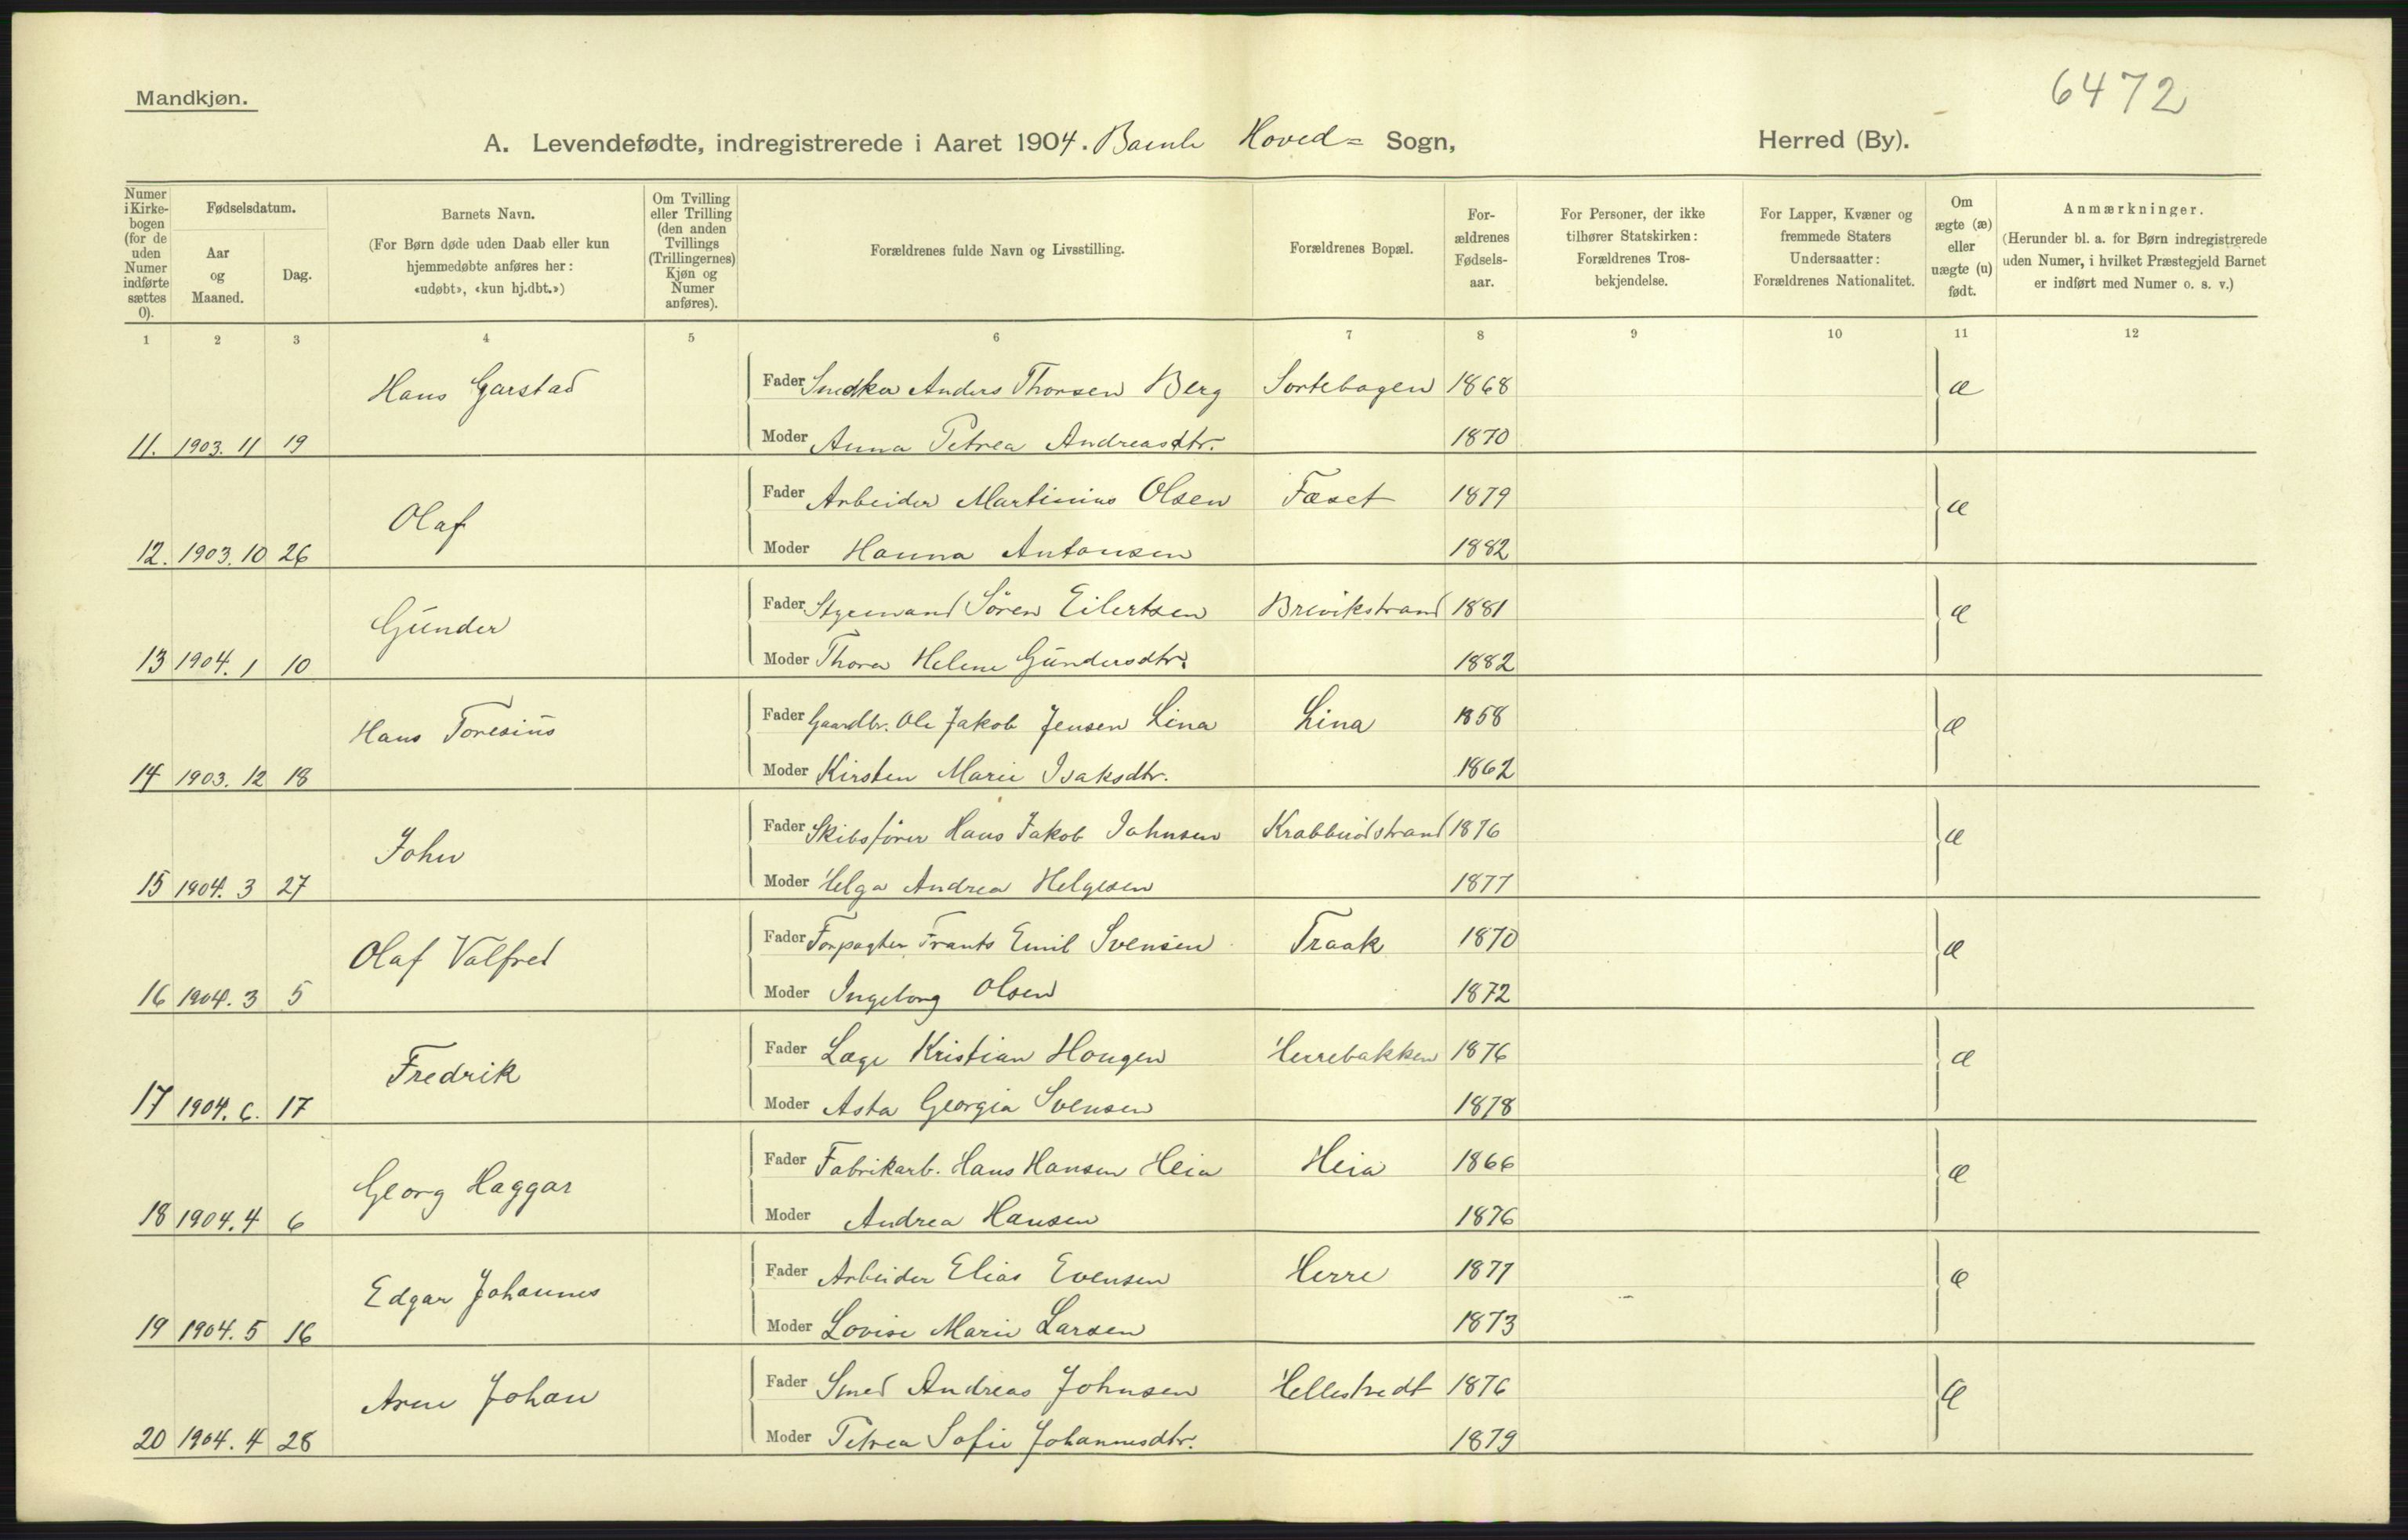 6472
Mandkjøn.
A. Levendefødte, indregistrerede i Aaret 1904. Bamle Hoved= Sogn, Herred (By).
Numer i Kirkebogen (for de uden Numer indførte sættes 0).
Fødselsdatum.
Aar og Maaned.
Dag.
Barnets Navn.
(For Børn døde uden Daab eller kun hjemmedøbte anføres her: «udøbt», «kun hj.dbt.»)
Om Tvilling eller Trilling (den anden Tvillings (Trillingernes) Kjøn og Numer anføres).
Forældrenes fulde Navn og Livsstilling.
Forældrenes Bopæl.
Forældrenes Fødselsaar.
For Personer, der ikke tilhører Statskirken: Forældrenes Trosbekjendelse.
For Lapper, Kvæner og fremmede Staters Undersaatter: Forældrenes Nationalitet.
Om ægte (æ) eller uægte (u) født.
Anmærkninger.
(Herunder bl. a. for Børn indregistrerede uden Numer, i hvilket Præstegjeld Barnet er indført med Numer o. s. v.)
1 2 3 4 5 6 7 8 9 10 11 12
Hans Garstad Fader Snedker Anders Thorsen Berg Sortebogen 1868 æ
11. 1903. 11 19 Moder Anna Petrea Andreasdtr. 1870
Olaf Fader Arbeider Martinius Olsen Faset 1879 æ
12. 1903. 10 26 Moder Hanna Antonsen 1882
Gunder Fader Styrmand Sören Eilertsen Brevikstrand 1881 æ
13 1904. 1 10 Moder Thora Helene Gundersdtr. 1882
Hans Toresius Fader Gaardbr. Ole Jakob Jensen Lina Lina 1858 æ
14 1903. 12 18 Moder Kirsten Marie Isaksdtr. 1862
John Fader Skibsfører Hans Jakob Johnsen Krabberödstrand 1876 æ
15 1904. 3 27 Moder Helga Andrea Helgesen 1877
Olaf Valfred Fader Forpagter Frants Emil Svensen Traak 1870 æ
16 1904. 3 5 Moder Ingeborg Olsen 1872
Fredrik Fader Læge Kristian Hougen Herrebakken 1876 æ
17 1904. 6. 17 Moder Asta Georgia Svensen 1878
Georg Haggar Fader Fabrikarb. Hans Hansen Heia Heia 1866 æ
18 1904. 4 6 Moder Andrea Hansen 1876
Edgar Johannes Fader Arbeider Elias Evensen Herre 1877 æ
19 1904. 5 16 Moder Lovise Marie Larsen 1873
Arne Johan Fader Smed Andreas Johnsen Hellestvedt 1876 æ
20 1904. 4 28 Moder Petrea Sofie Johannesdtr. 1879